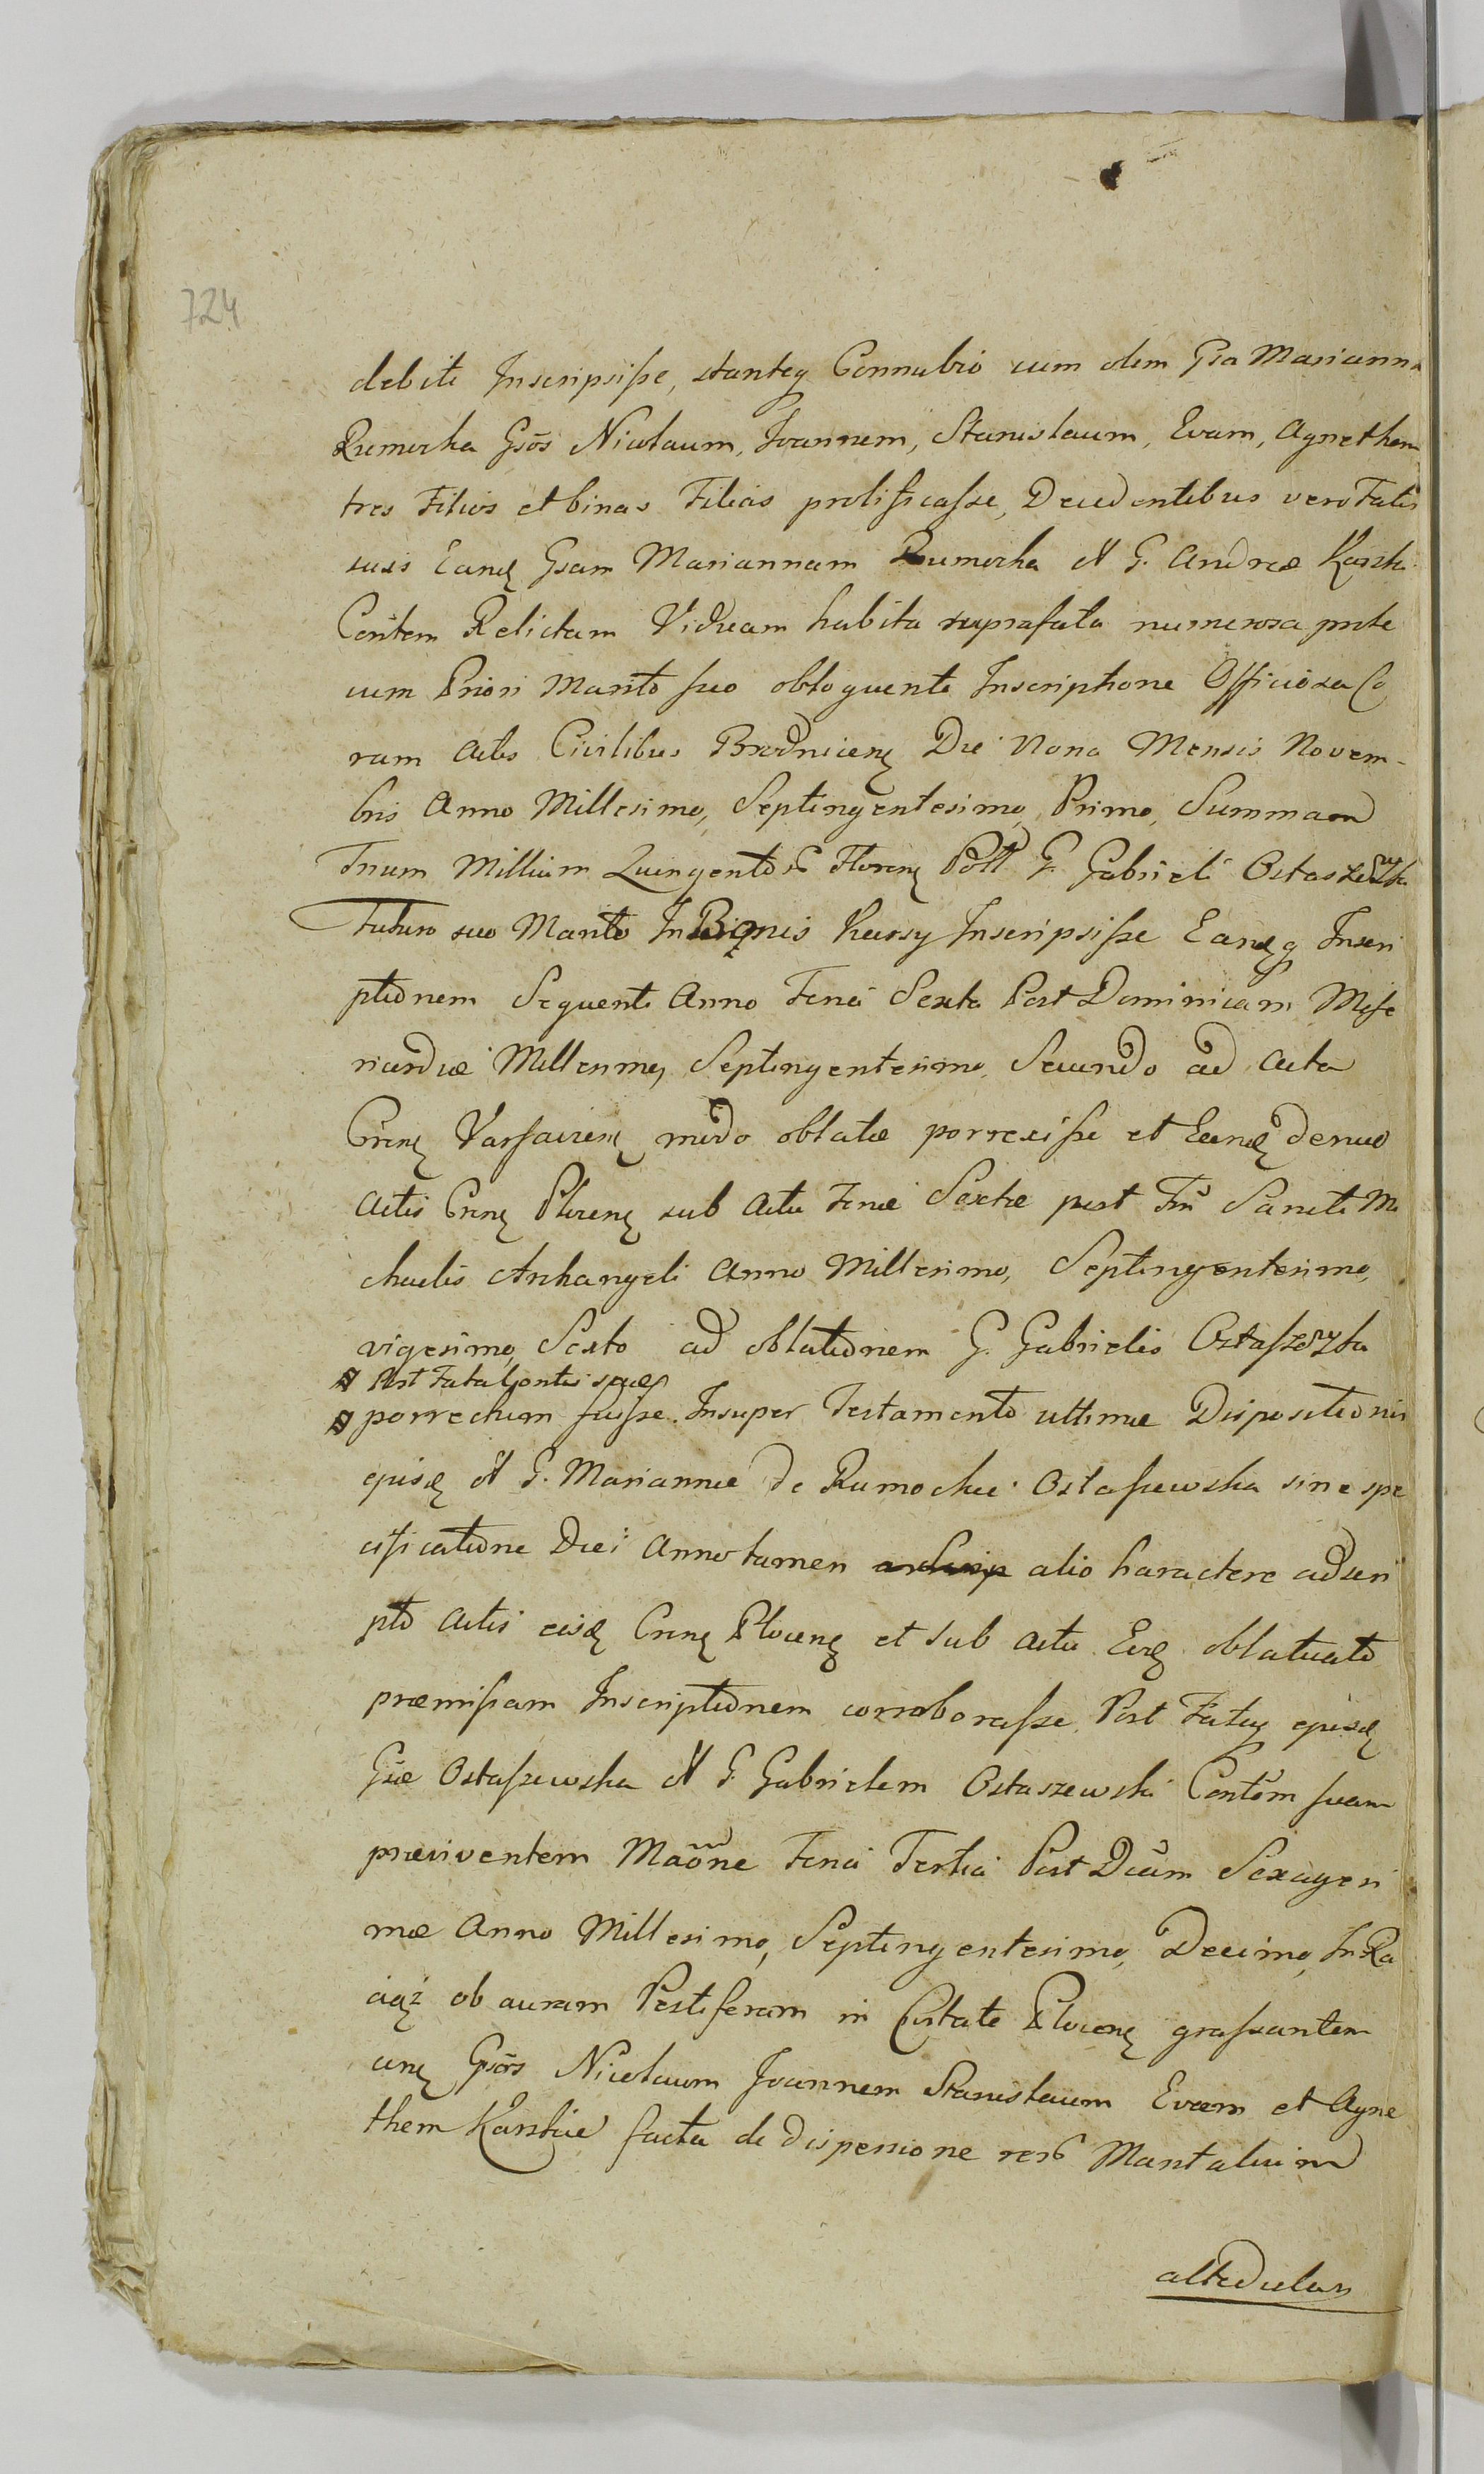 724
debite Inscripsisse, stanteq Connubio cum olim Gsa Marianna
Rumocka Gsos Nicolaum, Joannem, Stanislaum, Evam, Agnethem
tres Filios et binas Filias prolificasse, Decedentibus vero Fatis
suis Eanq Gsam Mariannam Rumocka M G. Andreæ Karski
Contem Relictam Viduam habita suprafata numerosa prole
cum Priori Marito suo obloquente Inscriptione Officiosa Co
ram Actis Civilibus Brodnicenq Die Nona Mensis Novem-
bris Anno Millesimo, Septingentesimo, Primo, Summam
Trium Millium Quingentor Florenq Poll G. Gabrieli Ostaszewski
Futuro suo Marito In Bonis Kursy Inscripsisse Eandq Inscri
ptionem Sequenti Anno Feria Sexta Post Dominicam Mise
ricordiæ Millesimo, Septingentesimo, Secundo ad Acta
Crenq Varsavienq modo oblatæ porrexisse et Eanq denuo
Actis Crenq Plocenq sub Actu Feriæ Sextæ post Ftm Sancti Mi
chaelis Archangeli Anno Millesimo, Septingentesimo,
vigesimo, Sexto ad oblationem G. Gabrielis Ostaszewski
Post Fata Contis suæ
porrectum fuisse. Insuper Testamento ultimæ Dispositionis
ejusq M G. Mariannæ de Rumockie Ostaszewska sine spe
cificatione Diei Anno tamen alio haractere adscri
pto Actis eisdq Crenq Plocenq et sub Actu Eodq oblatuato
præmissam Inscriptionem corroborasse Post Fataq ejusdq
Gsæ Ostaszewska M G. Gabrielem Ostaszewski Contem suam
præviventem Maõne Feria Tertia Post Dcam Sexagesi
mæ Anno Millesimo, Septingentesimo, Decimo, In Ra
ciąż ob auram Pestiferam in Civitate Plocenq grassantem
cum Gsos Nicolaum Joannem Stanislaum Evam et Agne
them Karskie facta de dispersione rerum Maritalium